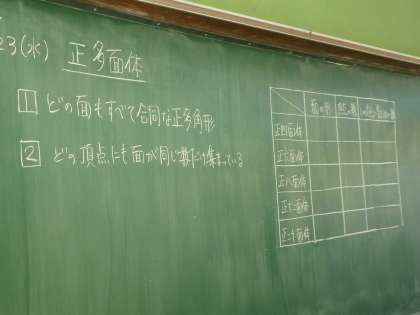 23(水) 正多面体
1 どの面もすべて合同な正多角形
2 どの頂点にも面が同じ数だけ集まっている
面の形
正四面体
正六面体
正八面体
正十二面体
正二十面体